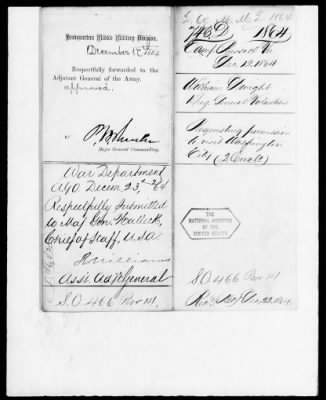 Headquarters Middle Military Division,
December 17th 1864
Respectfully forwarded to the
Adjutant General of the Army.
approved.
Major General Commanding.
War Department
AGO. Decem 23d /64
Respectfully Submitted
to Maj. Gen. Halleck,
Chief of Staff, U.S.A.
Asst. Adjt General
S.O 466 Par 111
1864
743 D 1864
Dec 12 1864
William Dwight
Brig. Genl Volunteers
Requesting permission
to visit Washington
City (2 Encls)
THE
NATIONAL ARCHIVES
OF THE
UNITED STATES
S.O 466 Par 111
Dec. 22, 1864